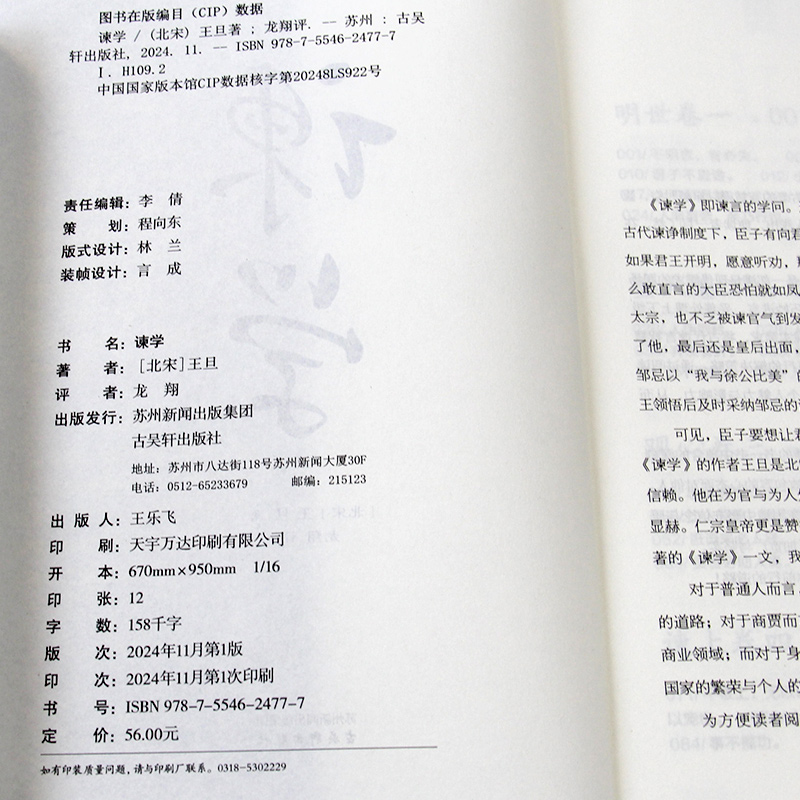 图书在版编目（CIP）数据
谏学 / （北宋）王旦著 ; 龙翔评. -- 苏州 : 古吴
轩出版社, 2024. 11. -- ISBN 978-7-5546-2477-7
Ⅰ. H109.2
中国国家版本馆CIP数据核字第20248LS922号
责任编辑：李 倩
策 划：程向东
版式设计：林 兰
装帧设计：言 成
书 名：谏学
著 者：［北宋］王旦
评 者：龙 翔
出版发行：苏州新闻出版集团
古吴轩出版社
地址：苏州市八达街118号苏州新闻大厦30F
电话：0512-65233679 邮编：215123
出 版 人：王乐飞
印 刷：天宇万达印刷有限公司
开 本：670mm×950mm 1/16
印 张：12
字 数：158千字
版 次：2024年11月第1版
印 次：2024年11月第1次印刷
书 号：ISBN 978-7-5546-2477-7
定 价：56.00元
如有印装质量问题，请与印刷厂联系。0318-5302229
《谏学》即谏言的学问。
古代谏诤制度下，臣子有向君
如果君王开明，愿意听劝，
么敢直言的大臣恐怕就如凤
太宗，也不乏被谏官气到发
了他，最后还是皇后出面，
邹忌以“我与徐公比美”的
王领悟后及时采纳邹忌的
可见，臣子要想让君
《谏学》的作者王旦是北宋
信赖。他在为官与为人
显赫。仁宗皇帝更是赞
著的《谏学》一文，我
对于普通人而言，
的道路；对于商贾而
商业领域；而对于身
国家的繁荣与个人的
为方便读者阅